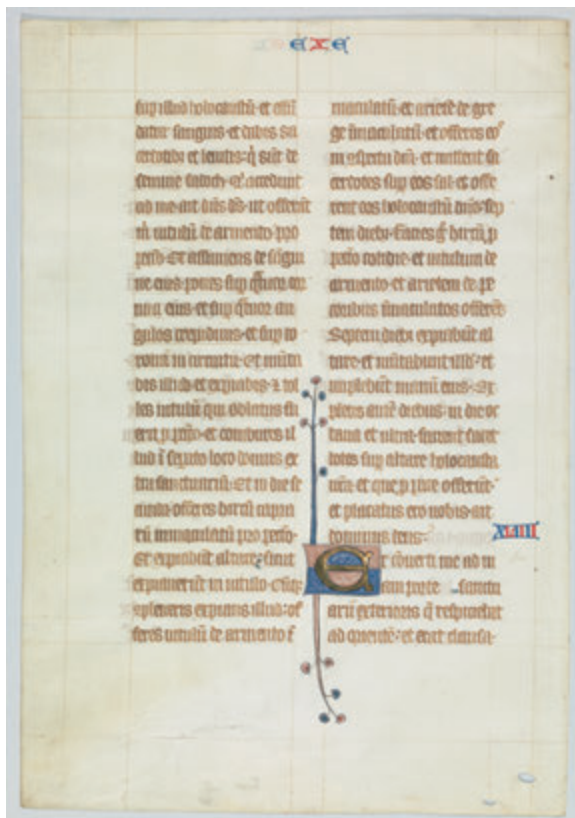 EZE
sup illud holocaustū et effū
datur sanguis et dabis sa
cerdotibȝ et leuitis q̄ sūt de
semine sadoch q̄ accedunt
ad me ait dn̄s ds̄ ut offerāt
m̄ uitulū de armento pro
pccō Et assumens de sāgui
ne eius pones sup q̄tuor cor
nua eius et sup q̄tuor an
gulos crepidinis et sup co
ronā in circuitu Et mūda
bis illud et expiabis et tol
les uitulū qui oblatus fu
erit p pccō et combures il
lud ī seꝑato loco domus ex
tra sanctuariū Et in die se
cunda offeres hircū capra
rū inmaculatū pro pccō
Et expiabūt altare sicut
expiauerūt in uitulo Cūqȝ
ꝯpleueris expians illud of
feres uitulū de armento ī
maculatū et arietē de gre
ge īmaculatū et offeres eos
in ꝯspectu dn̄i et mittent sa
cerdotes sup eos sal et offe
rent eos holocaustū dn̄o Sep
tem diebȝ facies hircū p
pccō cotidie et uitulum de
armento et arietem de pe
coribus īmaculatos offerēt
Septem diebȝ expiabūt al
tare et mūdabunt illd et
implebūt manū eius Ex
pletis autē diebus in die oc
taua et ultra facient sacer
dotes sup altare holocausta
ura et que p pace offerūt
et placatus ero uobis ait
dominus deus
XLIIII
Et ꝯuerti me ad ui
am porte sanctu
arii exterioris q̄ respiciebat
ad orientē et erat clausa